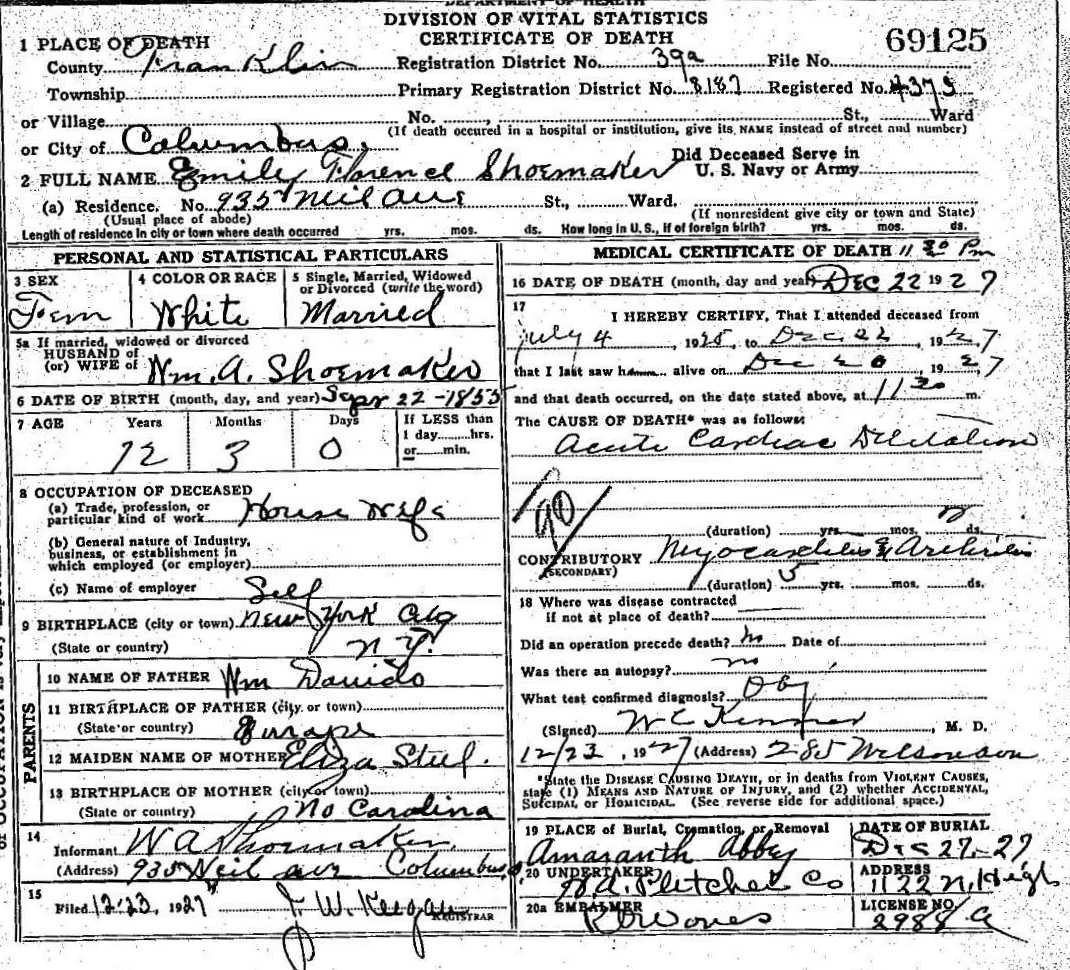 DEPARTMENT OF HEALTH
DIVISION OF VITAL STATISTICS
CERTIFICATE OF DEATH
69125
1 PLACE OF DEATH
County Franklin Registration District No. 392 File No.
Township Primary Registration District No. 8187 Registered No. 4375
or Village No. , St., Ward
(If death occured in a hospital or institution, give its NAME instead of street and number)
or City of Columbus,
2 FULL NAME Emily Florence Shoemaker Did Deceased Serve in U. S. Navy or Army
(a) Residence. No. 935 Neil Ave St., Ward.
(Usual place of abode) (If nonresident give city or town and State)
Length of residence in city or town where death occurred yrs. mos. ds. How long in U. S., if of foreign birth? yrs. mos. ds.
PERSONAL AND STATISTICAL PARTICULARS
3 SEX
Fem
4 COLOR OR RACE
White
5 Single, Married, Widowed
or Divorced (write the word)
Married
5a If married, widowed or divorced
HUSBAND of
(or) WIFE of Wm. A. Shoemaker
6 DATE OF BIRTH (month, day, and year) Sept 22-1855
7 AGE Years Months Days If LESS than
1 day hrs.
or min.
72 3 0
8 OCCUPATION OF DECEASED
(a) Trade, profession, or
particular kind of work House Wife
(b) General nature of Industry,
business, or establishment in
which employed (or employer)
(c) Name of employer Self
9 BIRTHPLACE (city or town) New York City
(State or country) N. Y.
PARENTS
10 NAME OF FATHER Wm Davids
11 BIRTHPLACE OF FATHER (city, or town)
(State or country) Europe
12 MAIDEN NAME OF MOTHER Eliza Steel.
13 BIRTHPLACE OF MOTHER (city or town)
(State or country) No Carolina
14
Informant W A Shoemaker
(Address) 935 Neil ave Columbus, O
15
Filed 12-23, 1927 J. W. Keegan
REGISTRAR
MEDICAL CERTIFICATE OF DEATH 11 30 Pm
16 DATE OF DEATH (month, day and year) Dec 22 1927
17
I HEREBY CERTIFY, That I attended deceased from
July 4, 1925, to Dec 22, 1927
that I last saw h alive on Dec 20, 1927
and that death occurred, on the date stated above, at 11 30 m.
The CAUSE OF DEATH* was as follows:
Acute Cardiac Dilitation
90
(duration) yrs. mos. ds.
CONTRIBUTORY Myocarditis & Arthritis
(SECONDARY)
(duration) 5 yrs. mos. ds.
18 Where was disease contracted
if not at place of death?
Did an operation precede death? no Date of
Was there an autopsy? no
What test confirmed diagnosis? Obj
(Signed) W C , M. D.
12/23, 1927 (Address) 285
*State the DISEASE CAUSING DEATH, or in deaths from VIOLENT CAUSES,
state (1) MEANS AND NATURE OF INJURY, and (2) whether ACCIDENTAL,
SUICIDAL, or HOMICIDAL. (See reverse side for additional space.)
19 PLACE of Burial, Cremation, or Removal
Amaranth Abbey
DATE OF BURIAL
Dec 27-27
20 UNDERTAKER
Pletcher Co
ADDRESS
1122 N. High
20a EMBALMER
LICENSE NO.
2988 a